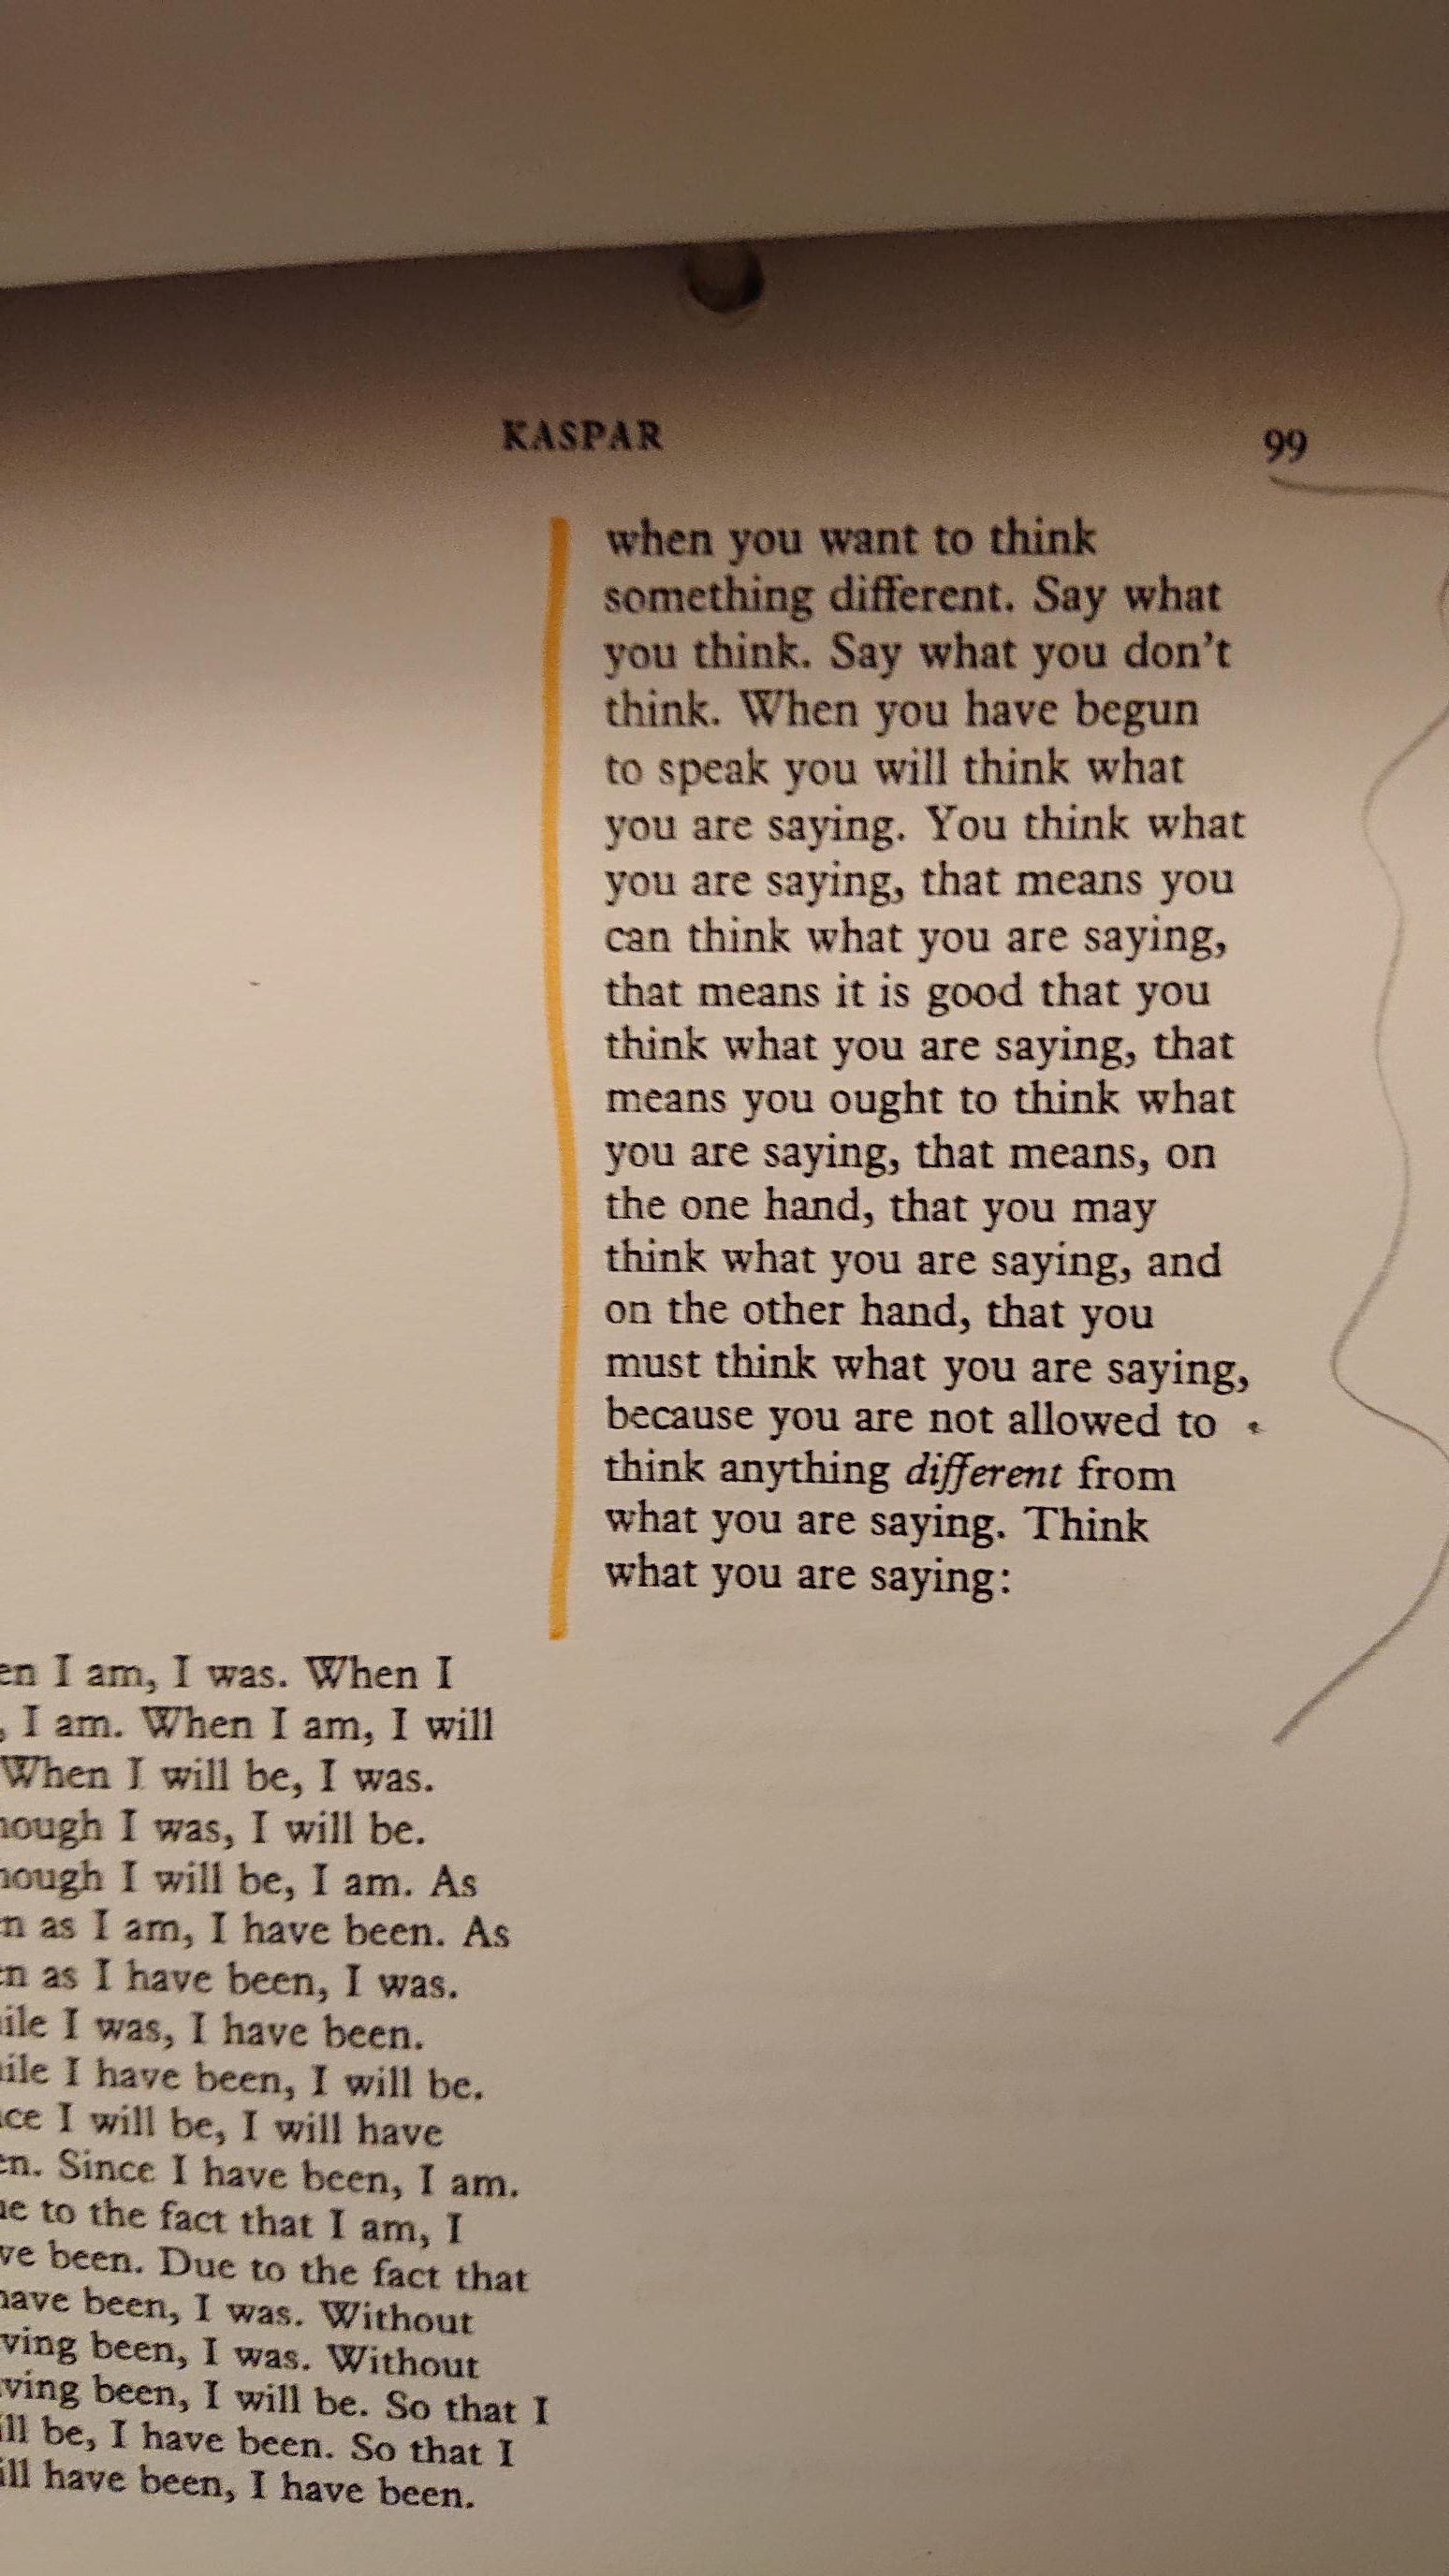 KASPAR 99
when you want to think
something different. Say what
you think. Say what you don't
think. When you have begun
to speak you will think what
you are saying. You think what
you are saying, that means you
can think what you are saying,
that means it is good that you
think what you are saying, that
means you ought to think what
you are saying, that means, on
the one hand, that you may
think what you are saying, and
on the other hand, that you
must think what you are saying,
because you are not allowed to
think anything different from
what you are saying. Think
what you are saying:
I am, I was. When I
I am. When I am, I will
When I will be, I was.
I was, I will be.
I will be, I am. As
as I am, I have been. As
as I have been, I was.
I was, I have been.
I have been, I will be.
I will be, I will have
Since I have been, I am.
to the fact that I am, I
been. Due to the fact that
been, I was. Without
been, I was. Without
been, I will be. So that I
be, I have been. So that I
have been, I have been.